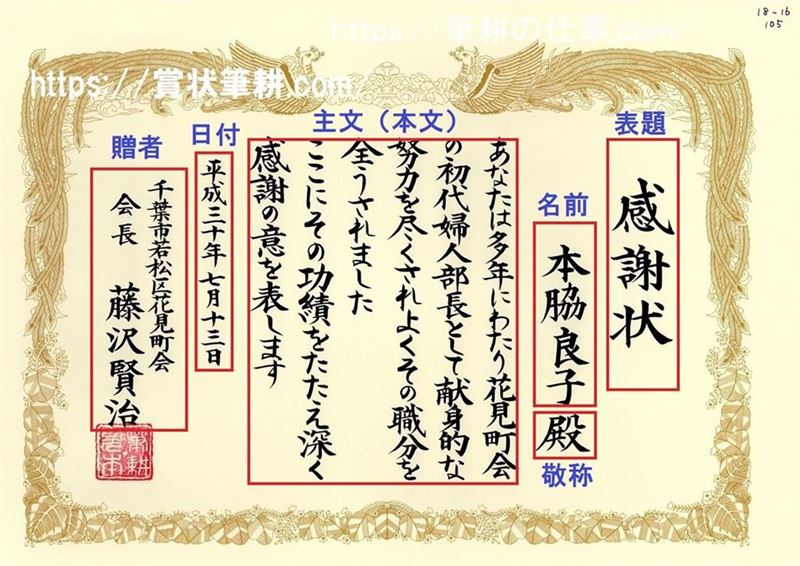 18-16
105
https://筆耕の仕事.com/
https://賞状筆耕.com/
表題
感謝状
名前
本脇良子
殿
敬称
主文（本文）
あなたは多年にわたり花見町会
の初代婦人部長として献身的な
努力を尽くされよくその職分を
全うされました
ここにその功績をたたえ深く
感謝の意を表します
日付
平成三十年七月十三日
贈者
千葉市若松区花見町会
会長 藤沢賢治